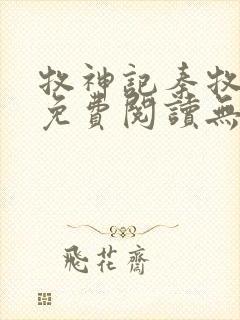 牧神記秦牧
免費閱讀無
飛花齋